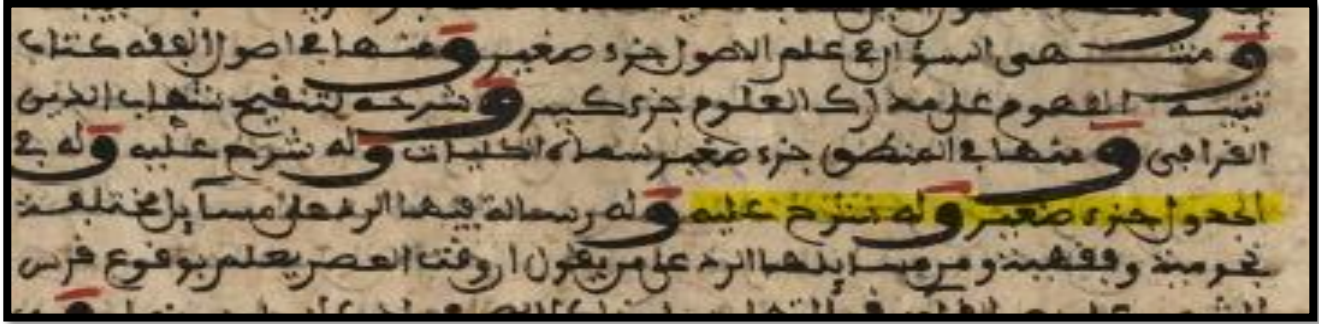 و منتهى السؤال في علم الاصول جزء صغير و منها في اصول الفقه كتاب
تنبيه الفهوم على مدارك العلوم جزء كبير و شرحه لتنقيح شهاب الدين
القرافي و منها في المنطق جزء صغير سماه الكليات و له شرح عليه و له في
الجدول جزء صغير و له شرح عليه و له رسالة فيها الرد على مسايل مختلفة
نحومية وفقهية ومن مسايلها الرد على من يقول ان وقت العصر يعلم بوقوع قرص